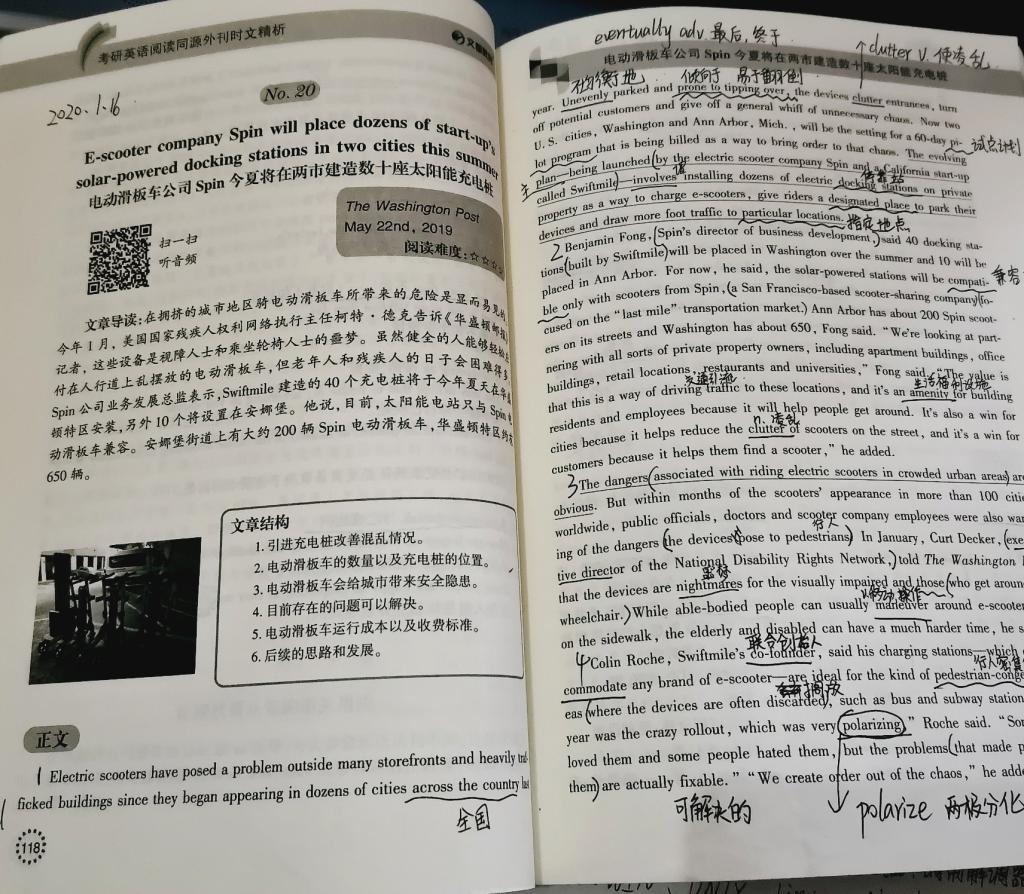 考研英语阅读同源外刊时文精析
2020.1.16
No. 20
E-scooter company Spin will place dozens of start-up's
solar-powered docking stations in two cities this summer
电动滑板车公司 Spin 今夏将在两市建造数十座太阳能充电桩
扫一扫
听音频
The Washington Post
May 22nd, 2019
阅读难度:☆☆☆
文章导读:在拥挤的城市地区骑电动滑板车所带来的危险是显而易见的
今年1月,美国国家残疾人权利网络执行主任柯特·德克告诉《华盛顿邮报》
记者,这些设备是视障人士和乘坐轮椅人士的噩梦。虽然健全的人能够轻松应
付在人行道上乱摆放的电动滑板车,但老年人和残疾人的日子会困难得多
Spin 公司业务发展总监表示,Swiftmile 建造的 40 个充电桩将于今年夏天在华盛
顿特区安装,另外 10 个将设置在安娜堡。他说,目前,太阳能电站只与 Spin 电
动滑板车兼容。安娜堡街道上有大约 200 辆 Spin 电动滑板车,华盛顿特区约有
650 辆。
文章结构
1. 引进充电桩改善混乱情况。
2. 电动滑板车的数量以及充电桩的位置。
3. 电动滑板车会给城市带来安全隐患。
4. 目前存在的问题可以解决。
5. 电动滑板车运行成本以及收费标准。
6. 后续的思路和发展。
正文
1 Electric scooters have posed a problem outside many storefronts and heavily traf-
ficked buildings since they began appearing in dozens of cities across the country last
全国
118
eventually adv. 最后,终于
clutter v. 使凌乱
电动滑板车公司 Spin 今夏将在两市建造数十座太阳能充电桩
不均衡地 倾向于 易于翻倒
year. Unevenly parked and prone to tipping over, the devices clutter entrances, turn
off potential customers and give off a general whiff of unnecessary chaos. Now two
U. S. cities, Washington and Ann Arbor, Mich. , will be the setting for a 60-day pi-
试点计划
lot program that is being billed as a way to bring order to that chaos. The evolving
主
plan—being launched by the electric scooter company Spin and a California start-up
called Swiftmile—involves installing dozens of electric docking stations on private
property as a way to charge e-scooters, give riders a designated place to park their
devices and draw more foot traffic to particular locations.
指定地点
2 Benjamin Fong, Spin's director of business development, said 40 docking sta-
tions built by Swiftmile will be placed in Washington over the summer and 10 will be
placed in Ann Arbor. For now, he said, the solar-powered stations will be compati-
兼容
ble only with scooters from Spin, (a San Francisco-based scooter-sharing company fo-
cused on the "last mile" transportation market.) Ann Arbor has about 200 Spin scoot-
ers on its streets and Washington has about 650, Fong said. "We're looking at part-
nering with all sorts of private property owners, including apartment buildings, office
buildings, retail locations, restaurants and universities," Fong said. "The value is
that this is a way of driving traffic to these locations, and it's an amenity for building
residents and employees because it will help people get around. It's also a win for
n. 凌乱
cities because it helps reduce the clutter of scooters on the street, and it's a win for
customers because it helps them find a scooter," he added.
3 The dangers associated with riding electric scooters in crowded urban areas are
obvious. But within months of the scooters' appearance in more than 100 cities
行人
worldwide, public officials, doctors and scooter company employees were also warn-
ing of the dangers the devices pose to pedestrians. In January, Curt Decker, (exe
tive director of the National Disability Rights Network,) told The Washington
噩梦
that the devices are nightmares for the visually impaired and those who get around
wheelchair. While able-bodied people can usually maneuver around e-scooter
on the sidewalk, the elderly and disabled can have a much harder time, he s
联合创始人
4 Colin Roche, Swiftmile's co-founder, said his charging stations—which
行人密集
commodate any brand of e-scooter—are ideal for the kind of pedestrian-conge
eas (where the devices are often discarded), such as bus and subway station
year was the crazy rollout, which was very polarizing," Roche said. "Som
loved them and some people hated them, but the problems (that made p
them) are actually fixable." "We create order out of the chaos," he adde
可解决的
polarize 两极分化